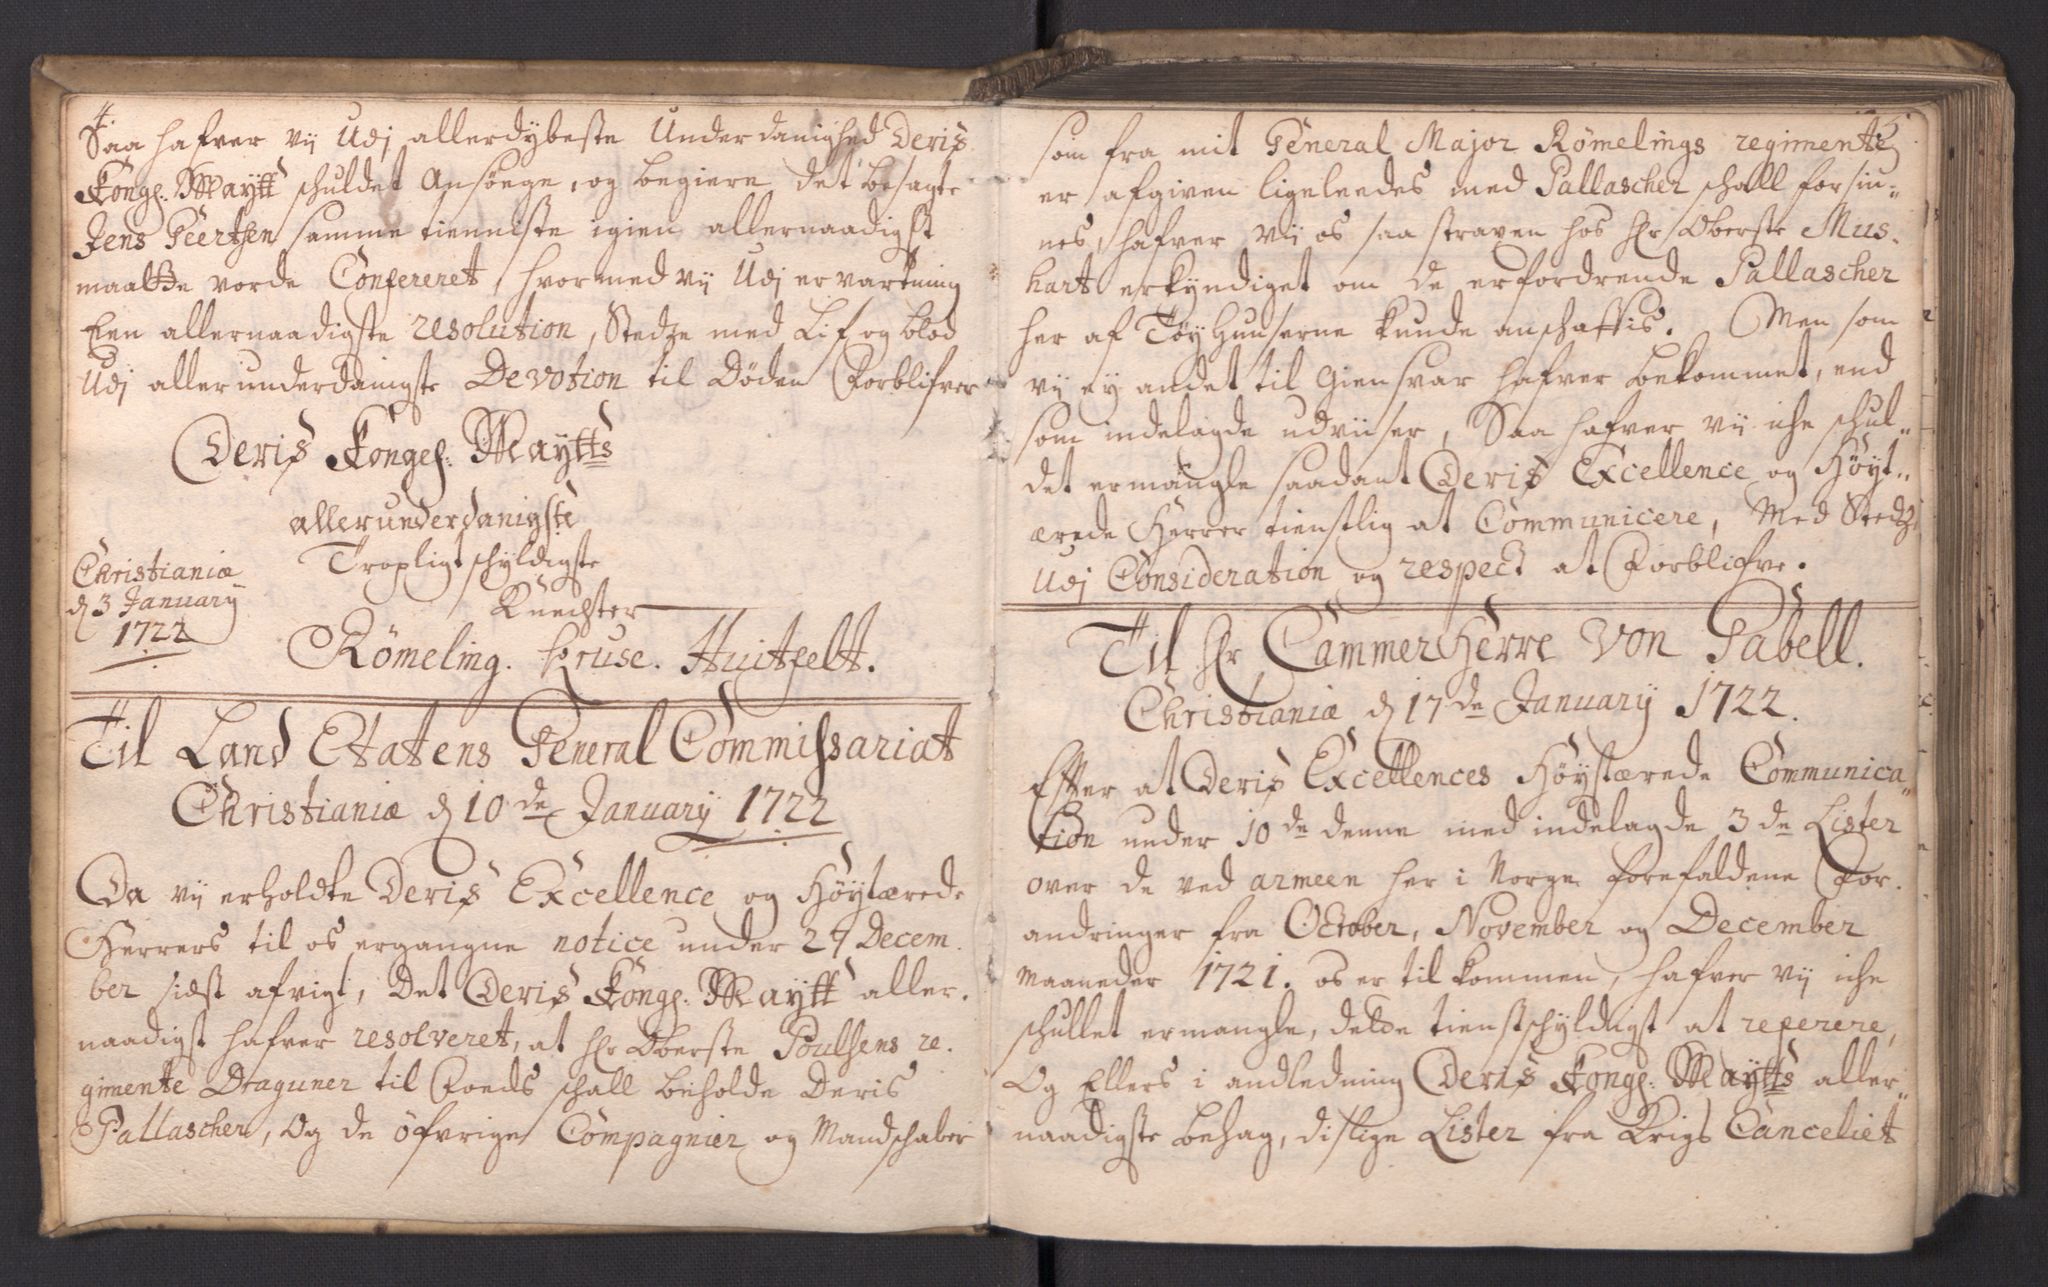 4.
Saa hafver vij Udj allerdybeste Underdanighed Deris
Kongl: Maytt schuldet Ansöege, og begiere det besagte
Jens Peertsen samme tienniste igien allernaadigst
maatte vorde Confereret, hvormed vij Udj ervartning
Een allernaadigste resolution, Stedze med Lif og blod
Udj allerunderdanigste Devotion til Døden Forblifver
Deris Kongel: Maytts
allerunderdanigste
Tropligtschyldigste
Knechter
Christianiæ
d 3 January
1722
Römeling. Kruse. Huitfelt.
Til Land Etatens General Commissariat
Christianiæ d 10de January 1722
Da vij erholdte Deris Excellence og Höytærede
Herrers til os ergangne notice under 27 Decem-
ber sidst afvigt, Det Deris Kongl: Maytt aller-
naadigst hafver resolveret, at Hr Oberste Poulsens re-
gimente Draguner til Foeds schall beholde Deris
Pallascher, Og de öfvrige Compagnier og Mandschaber
5.
som fra mit General Major Römelings regimente
er afgiven ligeleedes med Pallascher schall forsiu-
nes, hafver vij os saa straxen hos Hr Oberste Mus-
hart erkyndiget om de erfordrende Pallascher
her af Töyhuuserne kunde anschaffis. Men som
vij ey andet til Giensvar hafver bekommet, end
som indelagde udviiser, Saa hafver vij iche schul-
det ermangle saadant Deris Excellence og Höyt-
ærede Herrer tienstlig at Communicere, Med Stedz
Udj Consideration og respect at Forblifve.
Til Hr Cammer Herre Von Gabell.
Christianiæ d 17de January 1722.
Efter at Deris Excellences Höystærede Communica-
tion under 10de denne med indelagde 3de Lister
over de ved armeen her i Norge forefaldene For-
andringer fra October, November og December
Maaneder 1721. os er tilkommen, hafver vij iche
schullet ermangle, dette tienstschyldigst at referere,
Og Ellers i andledning Deris Kongl: Maytts aller-
naadigste behag, dislige Lister fra Krigs Canceliet